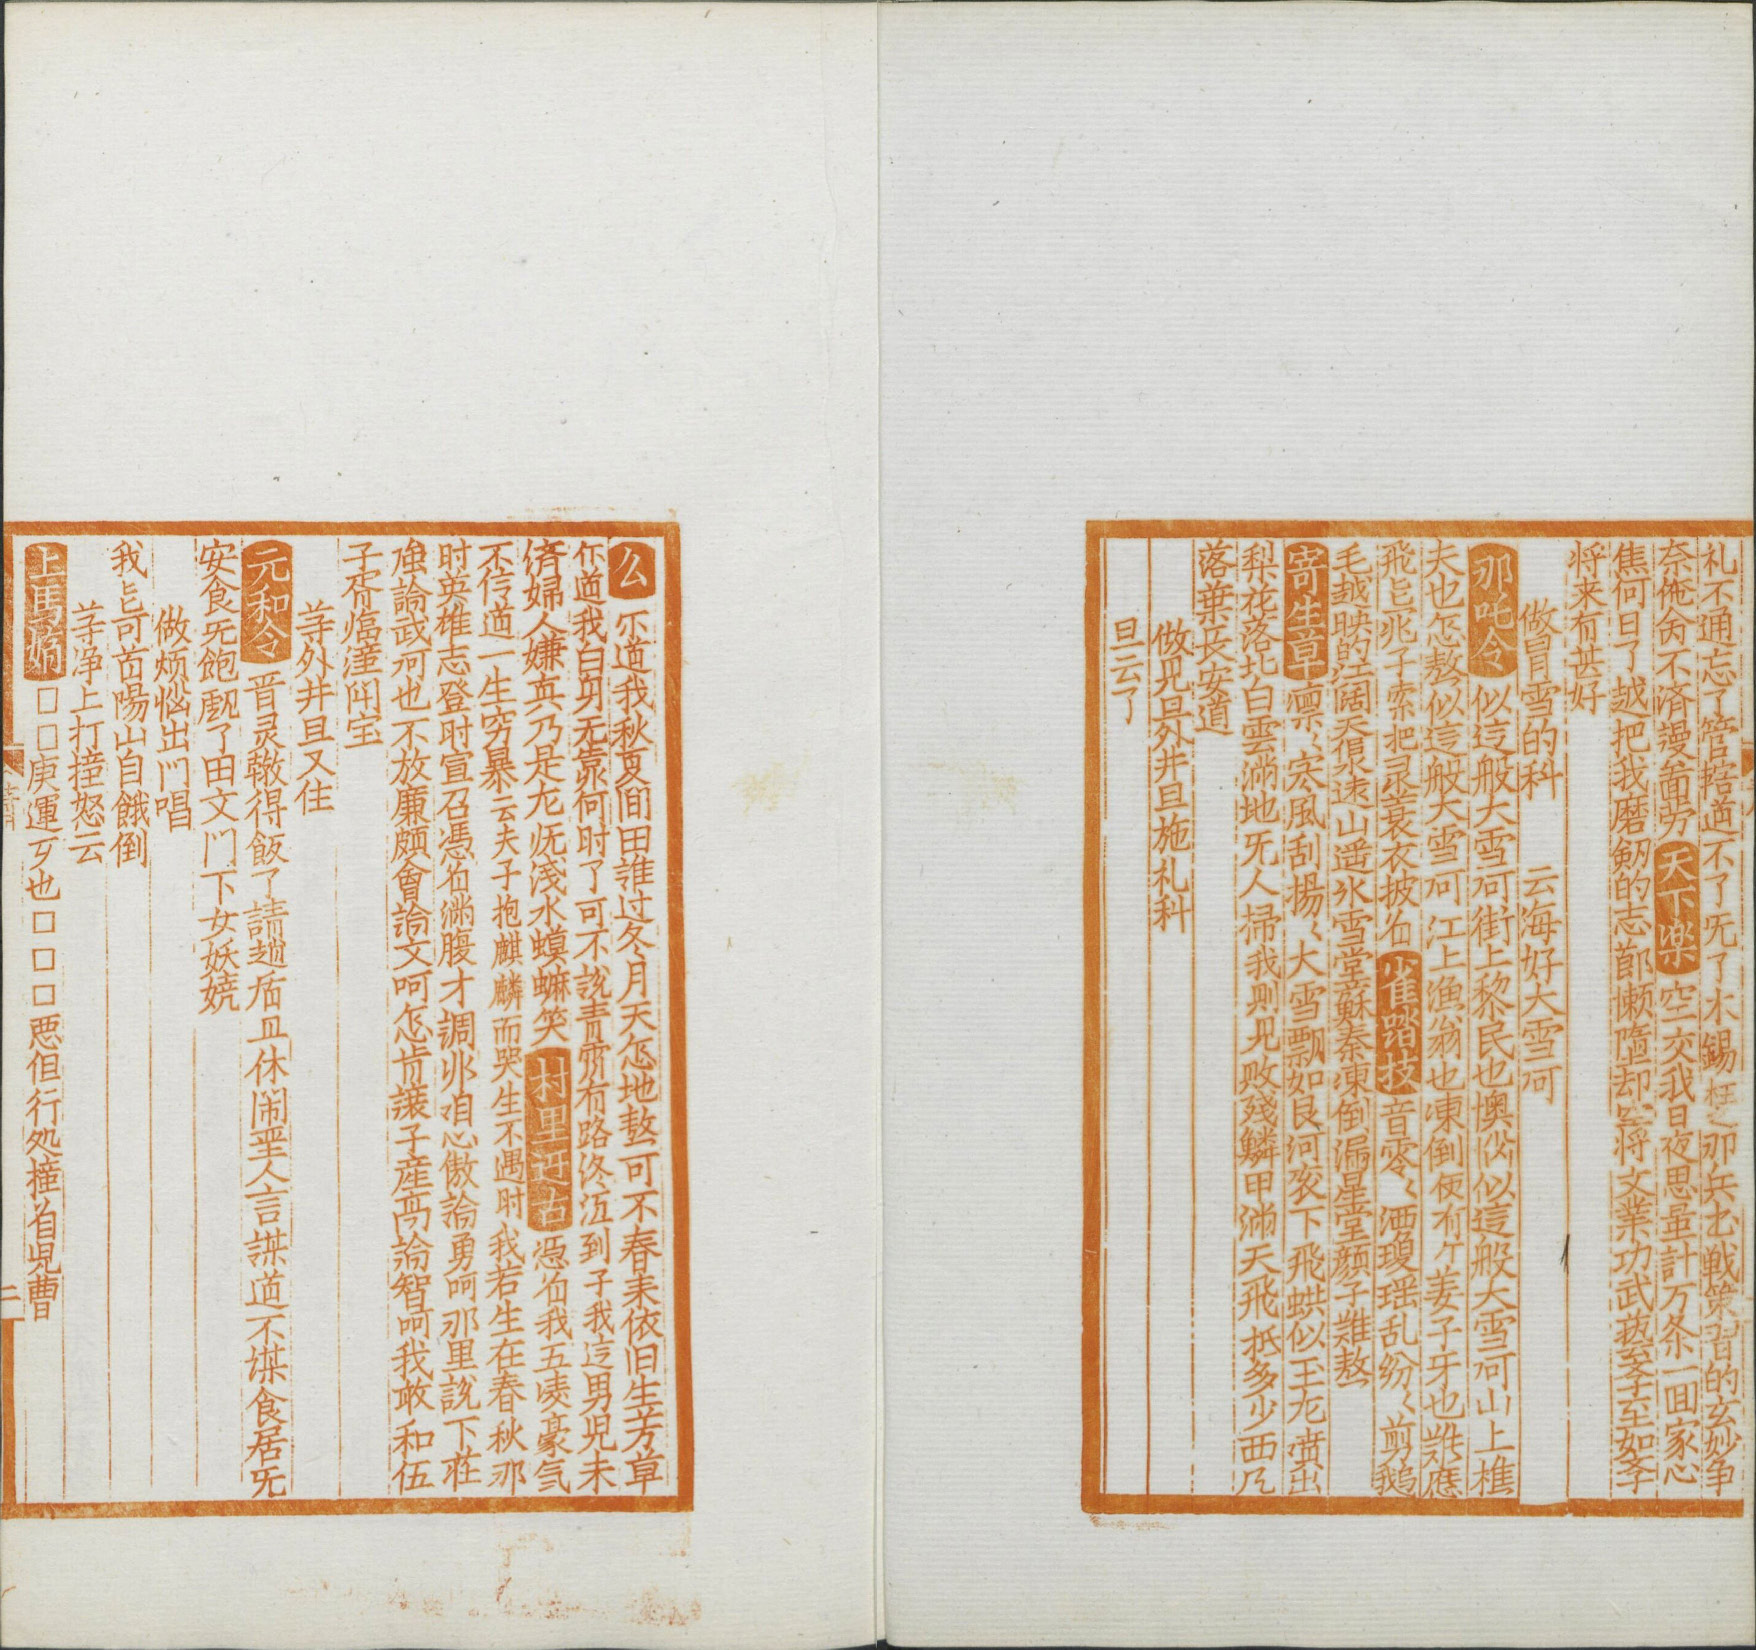 礼不通忘了管辖道不了旡了木錫枉之那兵书戦策習的玄妙争
奈俺肏不済謾啚劳天下楽空交我日夜思量計万条一囬家心
焦何日了越把我磨劔的志節懒隋却空将文業功武藝孝至如孝
将来有甚好
做冐雪的科　云海好大雪呵
那吒令似这般大雪呵街上黎民也懊似似这般大雪呵山上樵
夫也怎熬似这般大雪呵江上漁翁也凍倒便有个姜子牙也难應
飛㠯兆子索把灵蓑衣披着雀踏枝音零〻洒瓊瑶乱紛〻剪鵝
毛越映的江阔天佷遠山遥氷雪堂蘇秦凍倒漏星堂顔子難熬
寄生草凛〻寒風刮揚〻大雪飘如艮河亥下飛蛱似玉尨賁出
梨花落北白雲满地旡人掃我則見败殘鱗甲满天飛抵多少西凢
落葉长安道
做見旦外井旦施礼科
旦云了
么 尔道我秋夏间田誰过冬月天怎地熬可不春来依旧生芳草
尓道我白身无靠何时了可不說青霄有路终須到子我这男児未
済婦人嫌真乃是尨旡浅水蟆蟻笑村里迓古憑着我五凌豪氣
不信道一生穷暴云夫子抱麒麟而哭生不遇时我若生在春秋那
时英椎志登时宣召憑着渊腹才調非咱心傲論勇呵那里說下莊
強論武呵也不放廉頗會論文呵怎肯讓子産高論智呵我敢和伍
子胥臨潼鬪宝
䓁外井旦又住
元和令晋灵辙得飯了請趙盾且休闹垩人言謀道不谋食居旡
安食旡飽覷了田文门下女妖嬈
做烦恼出门唱
我㠯可首陽山自餓倒
䓁净上打撞怒云
上馬嬌□□庚運亨也□□□悪但行処撞着児曹
二